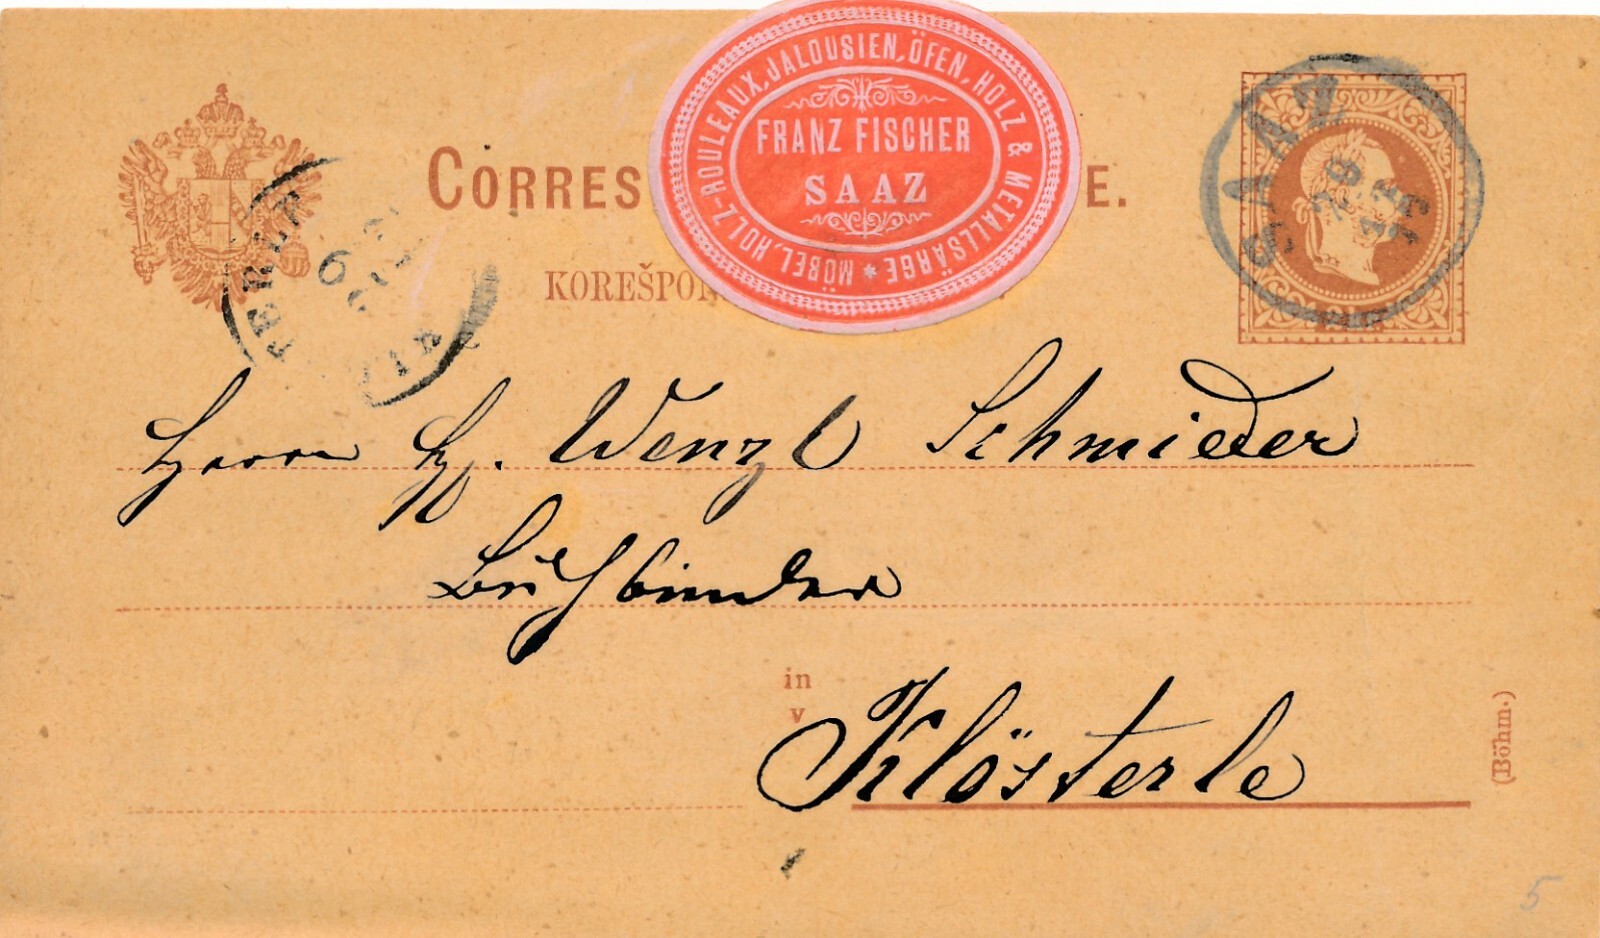 MÖBEL, HOLZ-ROULEAUX, JALOUSIEN, ÖFEN, HOLZ & METALLSÄRGE
FRANZ FISCHER
SAAZ
CORRES E.
KOREŠPO
SAAZ
Herrn H. Wenzl Schmieder
Buchbinder
in
v
Klösterle
(Böhm.)
5